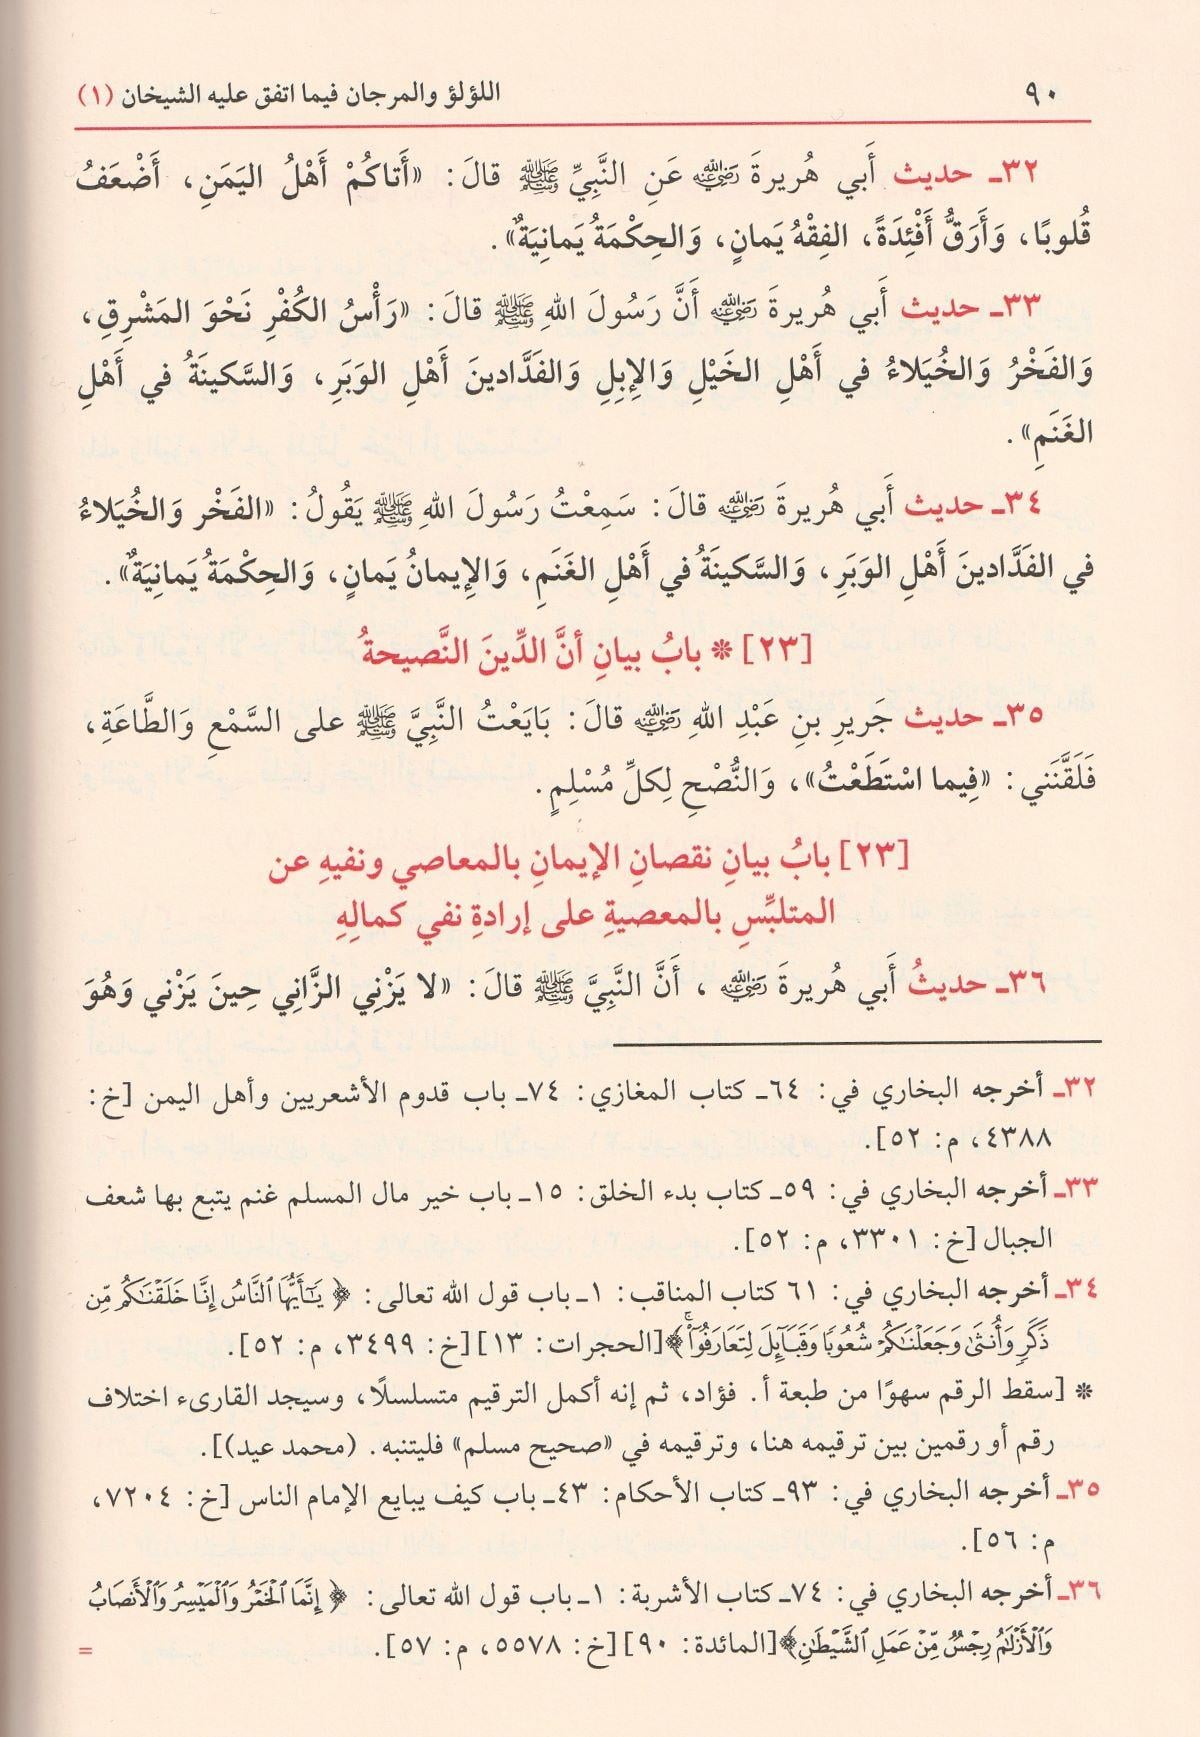 ٩٠
اللؤلؤ والمرجان فيما اتفق عليه الشيخان (١)
٣٢ـ حديث أَبي هُريرةَ رضي الله عنه عَنِ النَّبِيِّ ﷺ قالَ: «أَتاكُمْ أَهْلُ اليَمَنِ، أَضْعَفُ
قُلوبًا، وَأَرَقُّ أَفْئِدَةً، الفِقْهُ يَمانٍ، وَالحِكْمَةُ يَمانِيَةٌ».
٣٣ـ حديث أَبي هُريرةَ رضي الله عنه أَنَّ رَسُولَ اللهِ ﷺ قالَ: «رَأْسُ الكُفْرِ نَحْوَ المَشْرِقِ،
وَالفَخْرُ وَالخُيَلاءُ في أَهْلِ الخَيْلِ وَالإِبِلِ وَالفَدَّادينَ أَهْلِ الوَبَرِ، وَالسَّكينَةُ في أَهْلِ
الغَنَمِ».
٣٤ـ حديث أَبي هُريرةَ رضي الله عنه قالَ: سَمِعْتُ رَسُولَ اللهِ ﷺ يَقُولُ: «الفَخْر وَالخُيَلاءُ
في الفَدَّادينَ أَهْلِ الوَبَرِ، وَالسَّكينَةُ في أَهْلِ الغَنَمِ، وَالإِيمانُ يَمانٍ، وَالحِكْمَةُ يَمانِيَةٌ».
[٢٣] * بابُ بيانِ أنَّ الدِّينَ النَّصيحةُ
٣٥ـ حديث جَريرِ بنِ عَبْدِ اللهِ رضي الله عنه قالَ: بَايَعْتُ النَّبِيَّ ﷺ على السَّمْعِ وَالطَّاعَةِ،
فَلَقَّنَني: «فِيما اسْتَطَعْتُ»، وَالنُّصْحِ لِكلِّ مُسْلِمٍ.
[٢٣] بابُ بيانِ نقصانِ الإيمانِ بالمعاصي ونفيهِ عن
المتلبِّسِ بالمعصيةِ على إرادةِ نفي كمالِهِ
٣٦ـ حديثُ أَبي هُريرةَ رضي الله عنه، أَنَّ النَّبِيَّ ﷺ قالَ: «لا يَزْنِي الزَّانِي حِينَ يَزْني وَهُوَ
٣٢ـ أخرجه البخاري في: ٦٤ـ كتاب المغازي: ٧٤ـ باب قدوم الأشعريين وأهل اليمن [خ:
٤٣٨٨، م: ٥٢].
٣٣ـ أخرجه البخاري في: ٥٩ـ كتاب بدء الخلق: ١٥ـ باب خير مال المسلم غنم يتبع بها شعف
الجبال [خ: ٣٣٠١، م: ٥٢].
٣٤ـ أخرجه البخاري في: ٦١ كتاب المناقب: ١ـ باب قول الله تعالى: ﴿يَٰٓأَيُّهَا ٱلنَّاسُ إِنَّا خَلَقْنَٰكُم مِّن
ذَكَرٍ وَأُنثَىٰ وَجَعَلْنَٰكُمْ شُعُوبًا وَقَبَآئِلَ لِتَعَارَفُوٓا۟ۚ﴾[الحجرات: ١٣][خ: ٣٤٩٩، م: ٥٢].
* [سقط الرقم سهوًا من طبعة أ. فؤاد، ثم إنه أكمل الترقيم متسلسلًا، وسيجد القارىء اختلاف
رقم أو رقمين بين ترقيمه هنا، وترقيمه في «صحيح مسلم» فليتنبه. (محمد عيد)].
٣٥ـ أخرجه البخاري في: ٩٣ـ كتاب الأحكام: ٤٣ـ باب كيف يبايع الإمام الناس [خ: ٧٢٠٤،
م: ٥٦].
٣٦ـ أخرجه البخاري في: ٧٤ـ كتاب الأشربة: ١ـ باب قول الله تعالى: ﴿إِنَّمَا ٱلْخَمْرُ وَٱلْمَيْسِرُ وَٱلْأَنصَابُ
وَٱلْأَزْلَٰمُ رِجْسٌ مِّنْ عَمَلِ ٱلشَّيْطَٰنِ﴾[المائدة: ٩٠][خ: ٥٥٧٨، م: ٥٧].
=